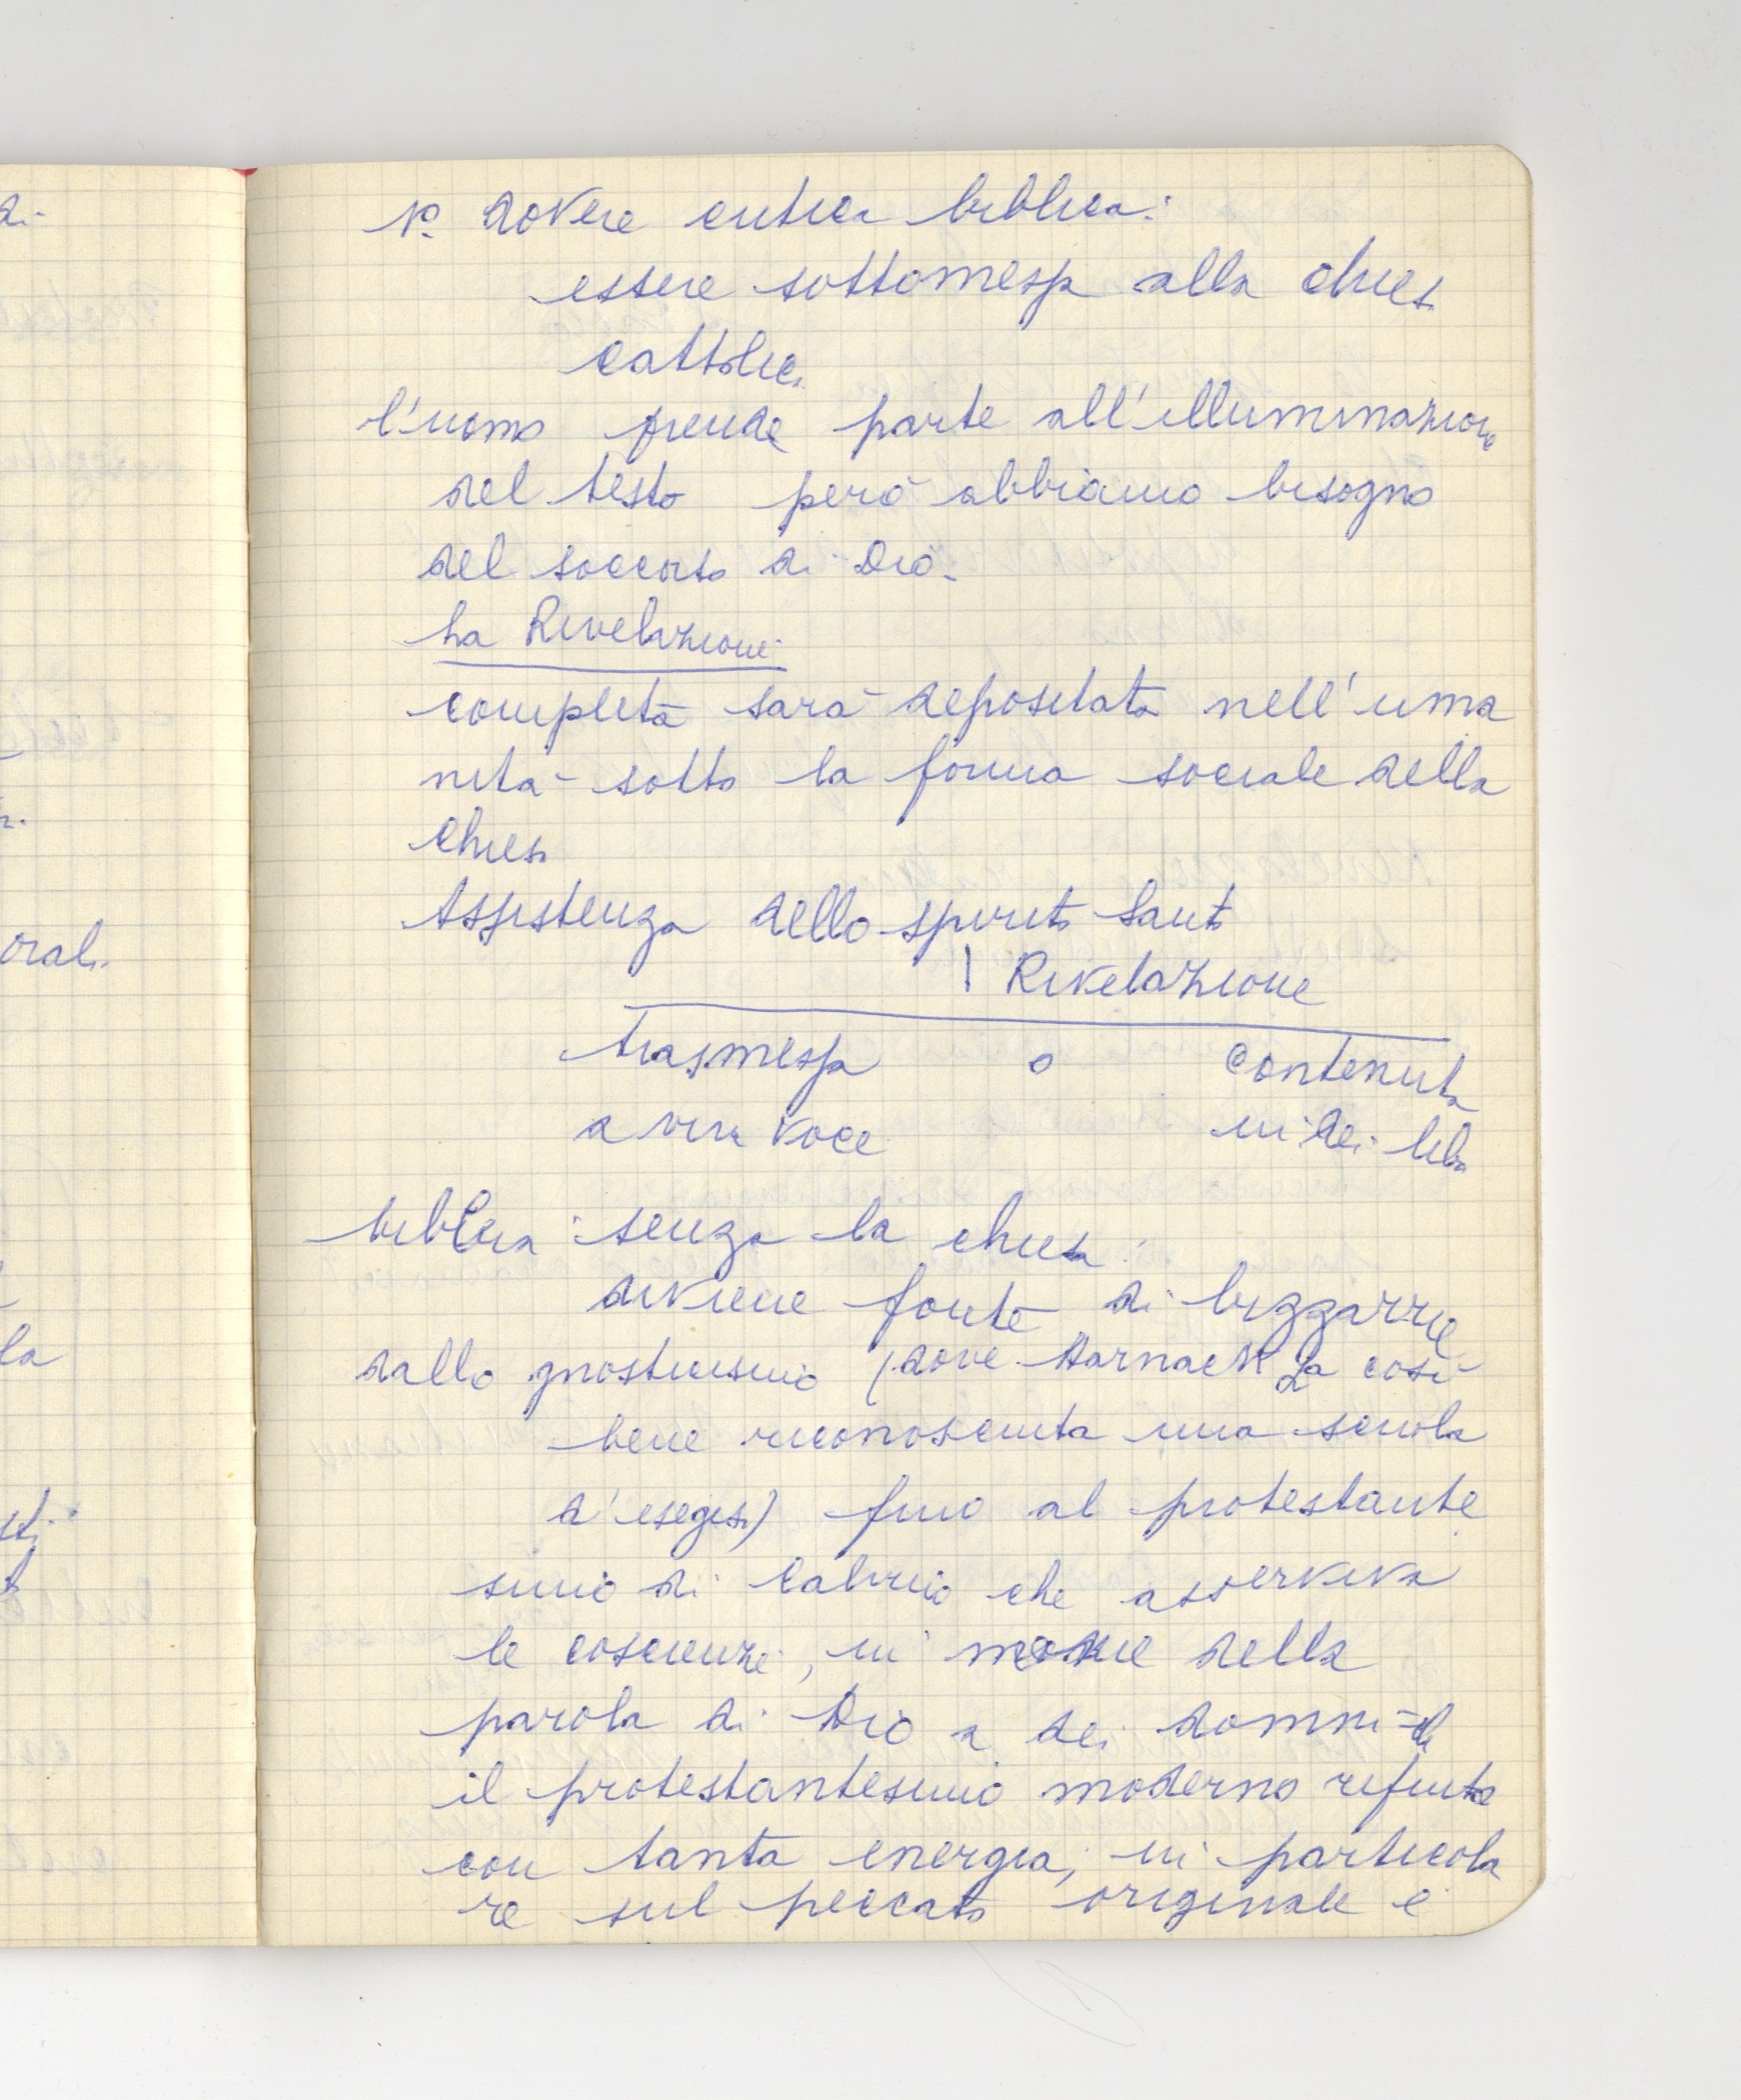 1º dovere critica biblica:
essere sottomessa alla chies.
cattolic.
l'uomo prende parte all'illuminazione
del testo però abbiamo bisogno
del soccorso di Dio.
La Rivelazione
completa sarà depositata nell'uma
nità sotto la forma sociale della
Chiesa
Assistenza dello spirito Santo
| Rivelazione
trasmessa o contenuta
a viva voce in dei libri
bibbia senza la chiesa:
diviene fonte di bizzarrie
dallo gnosticismo (dove Harnack ha così
bene riconosciuta una scuola
d'esegesi) fino al protestante
simo di Calvino che asserviva
le coscienze, in nome della
parola di Dio a dei dommi
il protestantesimo moderno rifiuta
con tanta energia, in particola
re sul peccato originale e
di
orali
la